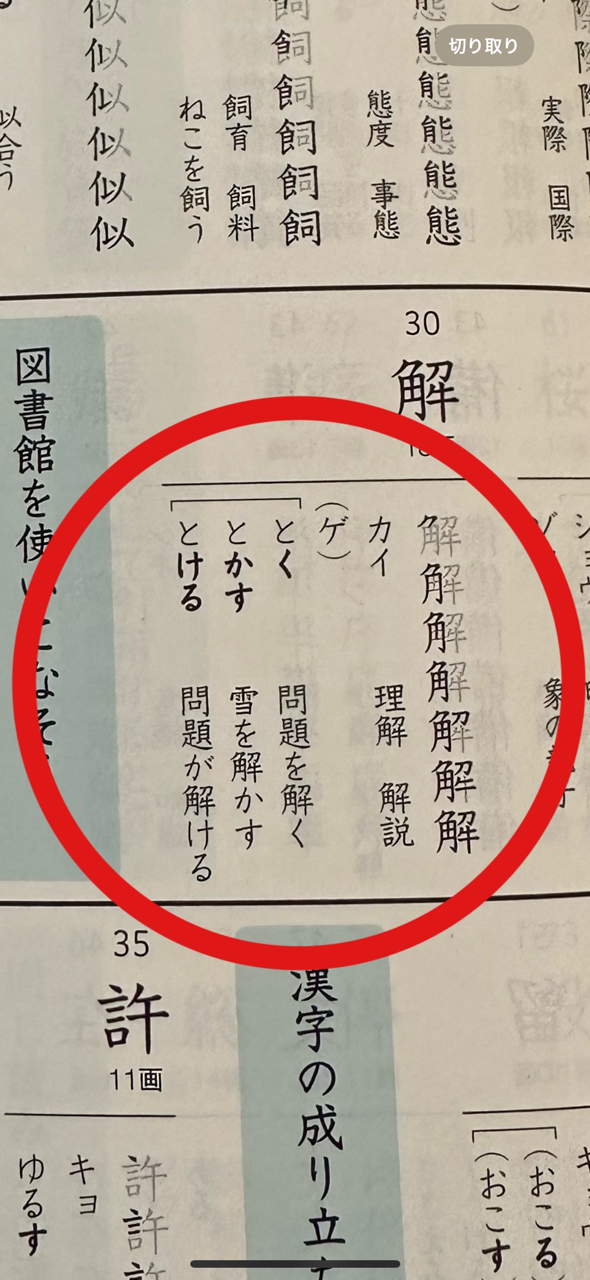 切り取り
実際 国際
態態態態態態
態度 事態
飼飼飼飼飼飼
飼育 飼料
ねこを飼う
似似似似似似
似合う
30
解
解解解解解解解
カイ
理解 解説
(ゲ)
とく
問題を解く
とかす
雪を解かす
とける
問題が解ける
図書館を使
漢字の成り立
(おこる
(おこす
35
許
11画
許許
キョ
ゆるす